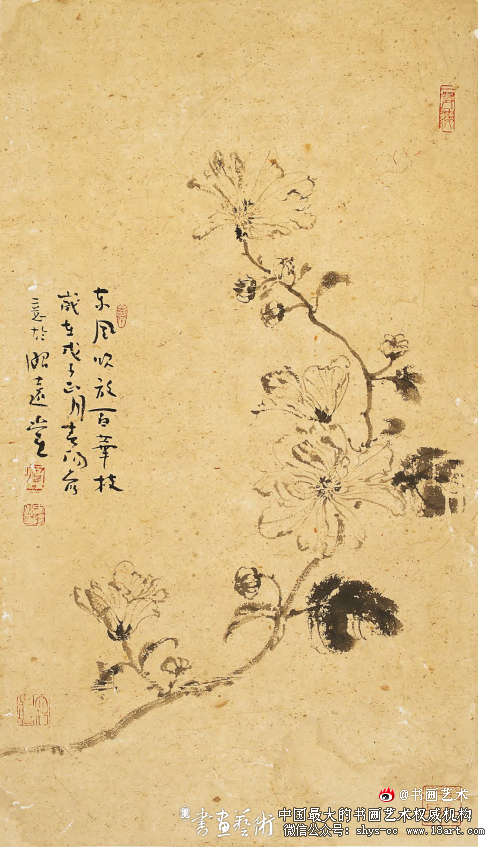 东风吹放百華枝
歲在戊子正月吉
於昭遠堂
@书画艺术
書画藝術
中国最大的书画艺术权威机构
微信公众号: shys-cc www.18art.com